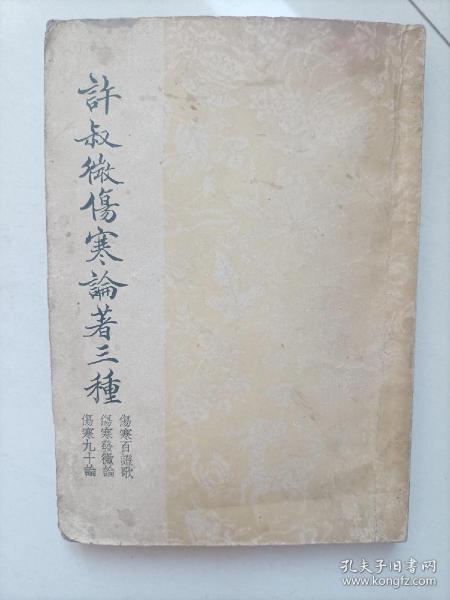 許叔微傷寒論著三種
傷寒百證歌
傷寒發微論
傷寒九十論
孔夫子旧书网
www.kongfz.com